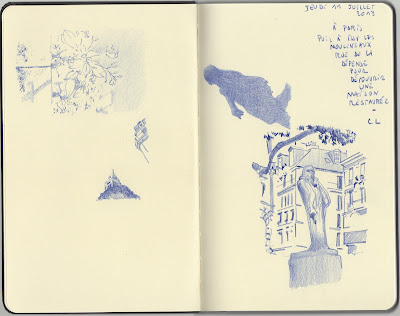 JEUDI 11 JUILLET
2013
À PARIS
PUIS À ISSY LES
MOULINEAUX
RUE DE LA
DÉFENSE
POUR
DÉCOUVRIR
UNE
MAISON
RESTAURÉE
-
C L